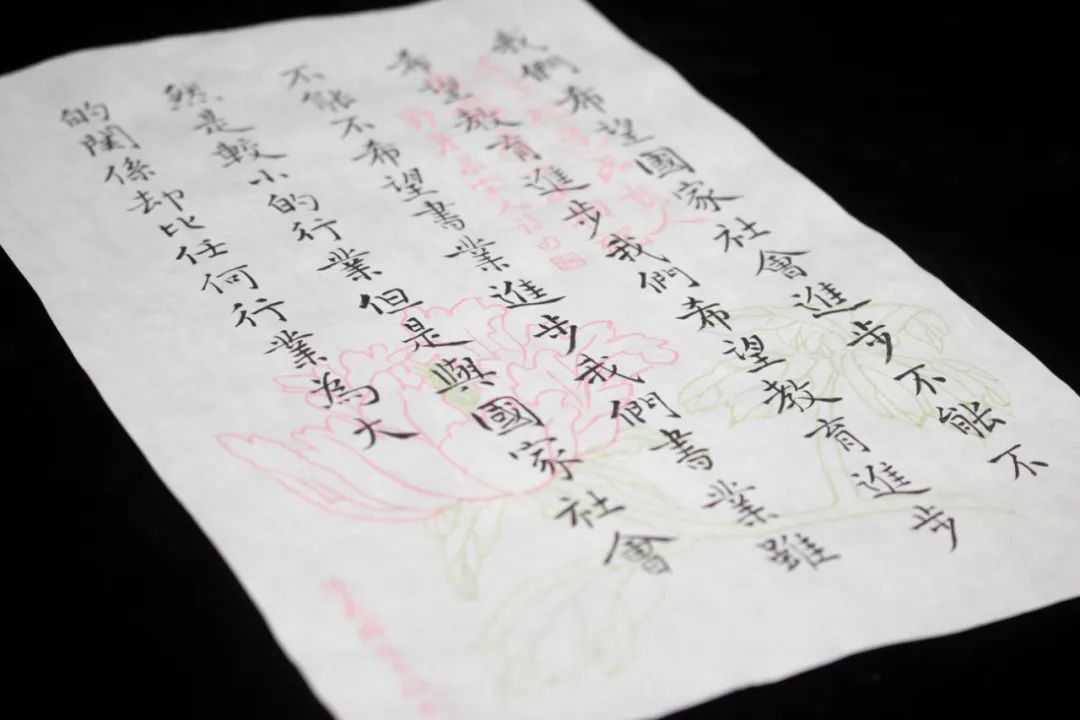 我們希望國家社會進步不能不
希望教育進步我們希望教育進步
不能不希望書業進步我們書業雖
然是較小的行業但是與國家社會
的関係却比任何行業為大